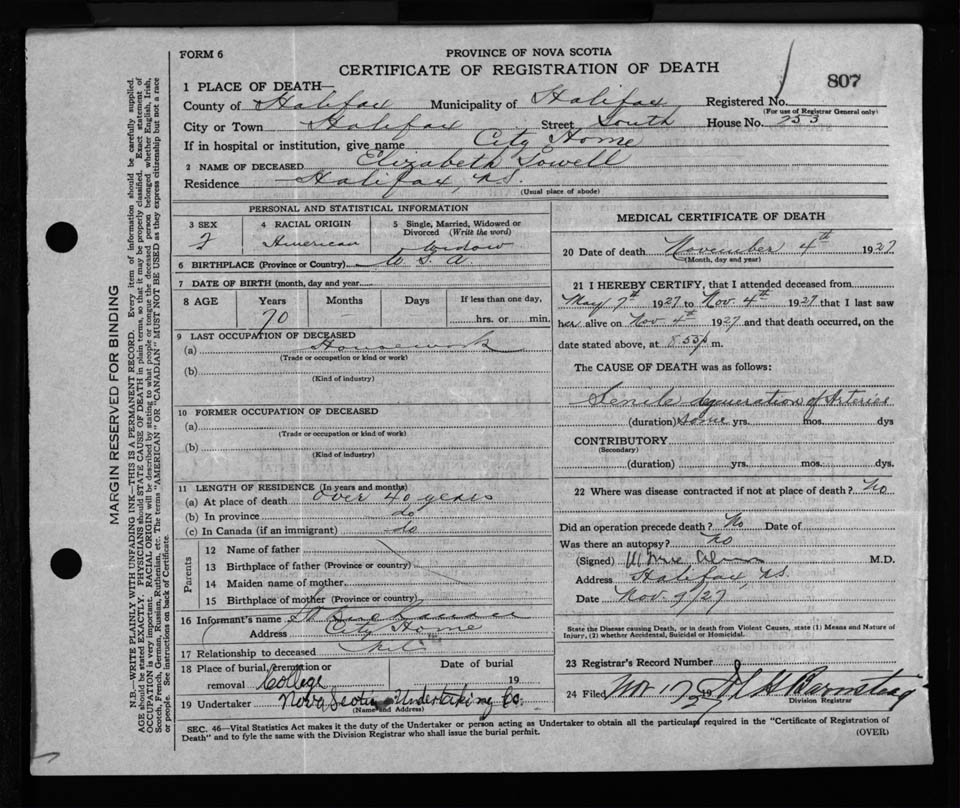 FORM 6
PROVINCE OF NOVA SCOTIA
CERTIFICATE OF REGISTRATION OF DEATH
807
1 PLACE OF DEATH—
County of Halifax Municipality of Halifax Registered No.
(For use of Registrar General only)
City or Town Halifax Street South House No. 253
If in hospital or institution, give name City Home
2 NAME OF DECEASED Elizabeth Lowell
Residence Halifax, N.S.
(Usual place of abode)
PERSONAL AND STATISTICAL INFORMATION
3 SEX
F
4 RACIAL ORIGIN
American
5 Single, Married, Widowed or Divorced (Write the word)
Widow
6 BIRTHPLACE (Province or Country) U S A.
7 DATE OF BIRTH (month, day and year)
8 AGE Years Months Days If less than one day,
70 — hrs. or min.
9 LAST OCCUPATION OF DECEASED
(a) Housework
(Trade or occupation or kind or work)
(b)
(Kind of industry)
10 FORMER OCCUPATION OF DECEASED
(a)
(Trade or occupation or kind of work)
(b)
(Kind of industry)
11 LENGTH OF RESIDENCE (In years and months)
(a) At place of death over 40 years
(b) In province do
(c) In Canada (if an immigrant) do
Parents
12 Name of father
13 Birthplace of father (Province or country)
14 Maiden name of mother
15 Birthplace of mother (Province or country)
16 Informant's name
Address City Home
17 Relationship to deceased
18 Place of burial, cremation or removal College
Date of burial
19
19 Undertaker Nova Scotia Undertaking Co.
(Name and Address)
MEDICAL CERTIFICATE OF DEATH
20 Date of death November 4th 1927
(Month, day and year)
21 I HEREBY CERTIFY, that I attended deceased from
May 7th 1927 to Nov. 4th 1927 that I last saw
her alive on Nov 4th 1927 and that death occurred, on the
date stated above, at 8.53 p m.
The CAUSE OF DEATH was as follows:
Senile degeneration of Arteries
(duration) some yrs. mos. dys
CONTRIBUTORY
(Secondary)
(duration) yrs. mos. dys.
22 Where was disease contracted if not at place of death? No
Did an operation precede death? No Date of
Was there an autopsy? no
(Signed) M.D.
Address Halifax, N.S.
Date Nov. 9/27
State the Disease causing Death, or in death from Violent Causes, state (1) Means and Nature of Injury, (2) whether Accidental, Suicidal or Homicidal.
23 Registrar's Record Number
24 Filed Nov 17 1927
Division Registrar
SEC. 46—Vital Statistics Act makes it the duty of the Undertaker or person acting as Undertaker to obtain all the particulars required in the "Certificate of Registration of
Death" and to fyle the same with the Division Registrar who shall issue the burial permit.
(OVER)
MARGIN RESERVED FOR BINDING
N.B.—WRITE PLAINLY WITH UNFADING INK—THIS IS A PERMANENT RECORD. Every item of information should be carefully supplied.
AGE should be stated EXACTLY. PHYSICIANS should STATE CAUSE OF DEATH in plain terms, so that it may be properly classified. Exact statement of
OCCUPATION is very important. RACIAL ORIGIN will be described by stating to what people or tongue the deceased person belonged whether English, Irish,
Scotch, French, German, Russian, Ruthenian, etc. The terms "AMERICAN" OR "CANADIAN" MUST NOT BE USED as they express citizenship but not a race
or people. See instructions on back of Certificate.